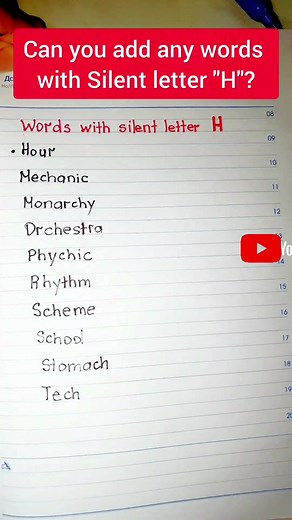 Can you add any words
with Silent letter "H"?
08
Words with silent letter H
09
• Hour
10
Mechanic
11
Monarchy
12
Orchestra
13
Phychic
14
Rhythm
15
Scheme
16
School
17
Stomach
18
Tech
19
20